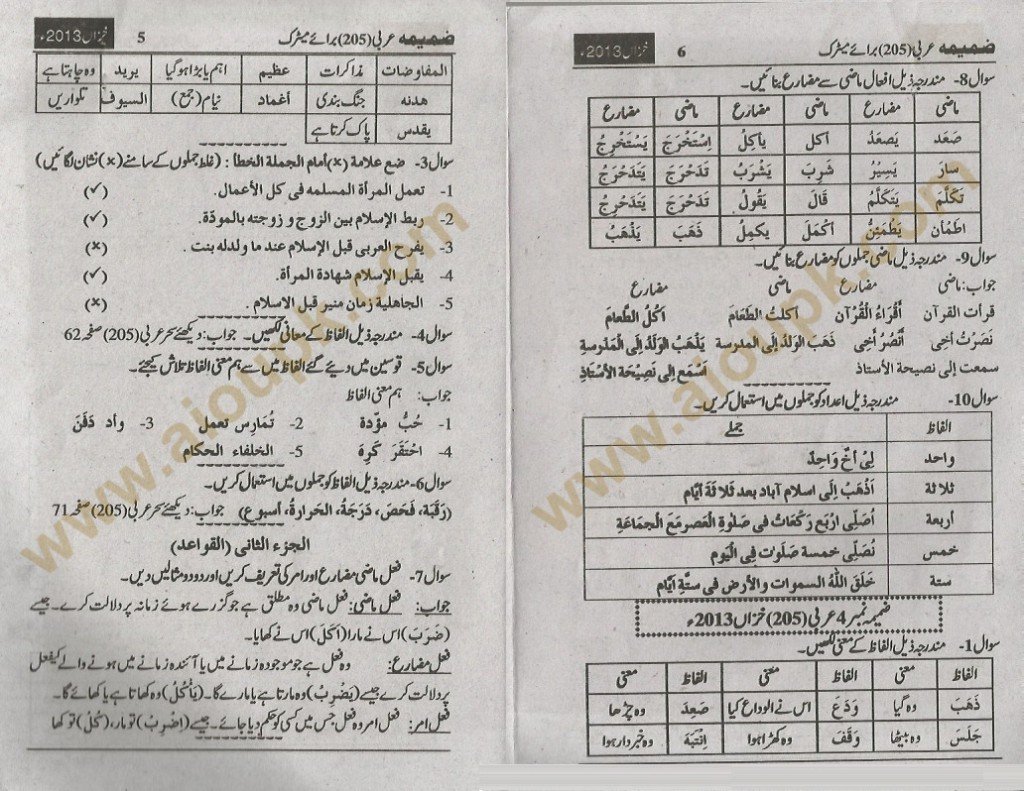 ضمیمہ عربی (205) برائے میٹرک 5 خزاں 2013ء
المفاوضات مذاکرات عظیم اہم یا بڑا ہوگیا یرید وہ چاہتا ہے
هدنه جنگ بندی أغماد نیام (جمع) السیوف تلواریں
یقدس پاک کرتا ہے
سوال3- ضع علامة (×) أمام الجملة الخطأ : (غلط جملوں کے سامنے (×) نشان لگائیں)
1- تعمل المرأة المسلمه فى كل الأعمال. (✓)
2- ربط الإسلام بين الزوج و زوجته بالمودّة. (✓)
3- يفرح العربى قبل الإسلام عند ما ولدله بنت. (×)
4- يقبل الإسلام شهادة المرأة. (✓)
5- الجاهلية زمان منير قبل الإسلام. (×)
سوال4- مندرجہ ذیل الفاظ کے معانی لکھیں۔ جواب: دیکھئے سحر عربی (205) صفحہ 62
سوال5- قوسین میں دیے گئے الفاظ میں سے ہم معنی الفاظ تلاش کیجئے۔
جواب: ہم معنی الفاظ
1- حُبُّ مودّة 2- تُمَارِس تعمل 3- وأد دَفَنَ
4- احتَقَرَ كَرِهَ 5- الخلفاء الحكام
سوال6- مندرجہ ذیل الفاظ کو جملوں میں استعمال کریں۔
(رَقَبَة، فَحَصَ، دَرَجَة، الحَرارة، أسبوع) جواب: دیکھئے سحر عربی (205) صفحہ 71
الجزء الثانى (القواعد)
سوال7- فعل ماضی مضارع اور امر کی تعریف کریں اور دو دو مثالیں دیں۔
جواب: فعل ماضی: فعل ماضی وہ مطلق ہے جو گزرے ہوئے زمانہ پر دلالت کرے۔ جیسے
(ضَرَبَ) اس نے مارا (اَكَلَ) اس نے کھایا۔
فعل مضارع: وہ فعل ہے جو موجودہ زمانے میں یا آئندہ زمانے میں ہونے والے کیفعل
پر دلالت کرے جیسے (يَضْرِبُ) وہ مارتا ہے یا مارے گا۔ (يَأْكُلُ) وہ کھاتا ہے یا کھائے گا۔
فعل امر: فعل امر وہ فعل جس میں کسی کو حکم دیا جائے۔ جیسے (اِضْرِبْ) تو مار، (كُلْ) تو کھا
ضمیمہ عربی (205) برائے میٹرک 6 خزاں 2013ء
سوال8- مندرجہ ذیل افعال ماضی سے مضارع بنائیں۔
ماضی مضارع ماضی مضارع ماضی مضارع
صَعَد يَصعَدُ أكل يأكِلُ اِسْتَخْرَجَ يَسْتَخْرِجُ
سارَ يَسِيْرُ شَرِبَ يَشْرَبُ تَدَحْرَجَ يَتَدَحْرَجُ
تَكَلَّمَ يَتَكَلَّمُ قَالَ يَقُولُ تَدَحْرَجَ يَتَدَحْرِجُ
اطمأن يَطْمَئِنُّ أكْمَلَ يكمِلُ ذَهَبَ يَذْهَبُ
سوال9- مندرجہ ذیل ماضی جملوں کو مضارع بنائیں۔
جواب: ماضی مضارع ماضی مضارع
قرأت القرآن أَقْرَاءُ الْقُرْآن اكلتُ الطَّعَامَ اكُلُ الطَّعامَ
نَصَرْتُ اَخِى أَنْصُرُ أَخِى ذَهَبَ الوَلَدُ إلى المدرسة يَذْهَبُ الوَلَدُ إلَى الْمَدْرسة
سمعت إلى نصيحة الأستاذ اَسْمَع إلى نَصِيْحَة الأُسْتَاذ
سوال10- مندرجہ ذیل اعداد کو جملوں میں استعمال کریں۔
الفاظ جملے
واحد لِىْ أَخٌ وَاحِدٌ
ثلاثة اَذْهَبُ اِلَى اسلام آباد بعد ثَلَاثَةَ أيَّام
أربعة اُصَلِّى اَرْبَع رَكَعَاتُ فى صَلٰوةِ الْعَصر مَعَ الْجَمَاعَةِ
خمس نُصَلِّى خمسة صَلَوٰت فِى الْيَوم
ستة خَلَقَ اللّٰهُ السموات والأرض فى ستَّةِ ايَّام
ضمیمہ نمبر 4 عربی (205) خزاں 2013ء
سوال1- مندرجہ ذیل الفاظ کے معنی لکھیں۔
الفاظ معنی الفاظ معنی الفاظ معنی
ذَهَبَ وہ گیا وَدَعَ اس نے الوداع کیا صَعِدَ وہ چڑھا
جَلَسَ وہ بیٹھا وَقَفَ وہ کھڑا ہوا اِنْتَبَهَ وہ خبردار ہوا
www.aioupk.com
www.aioupk.com